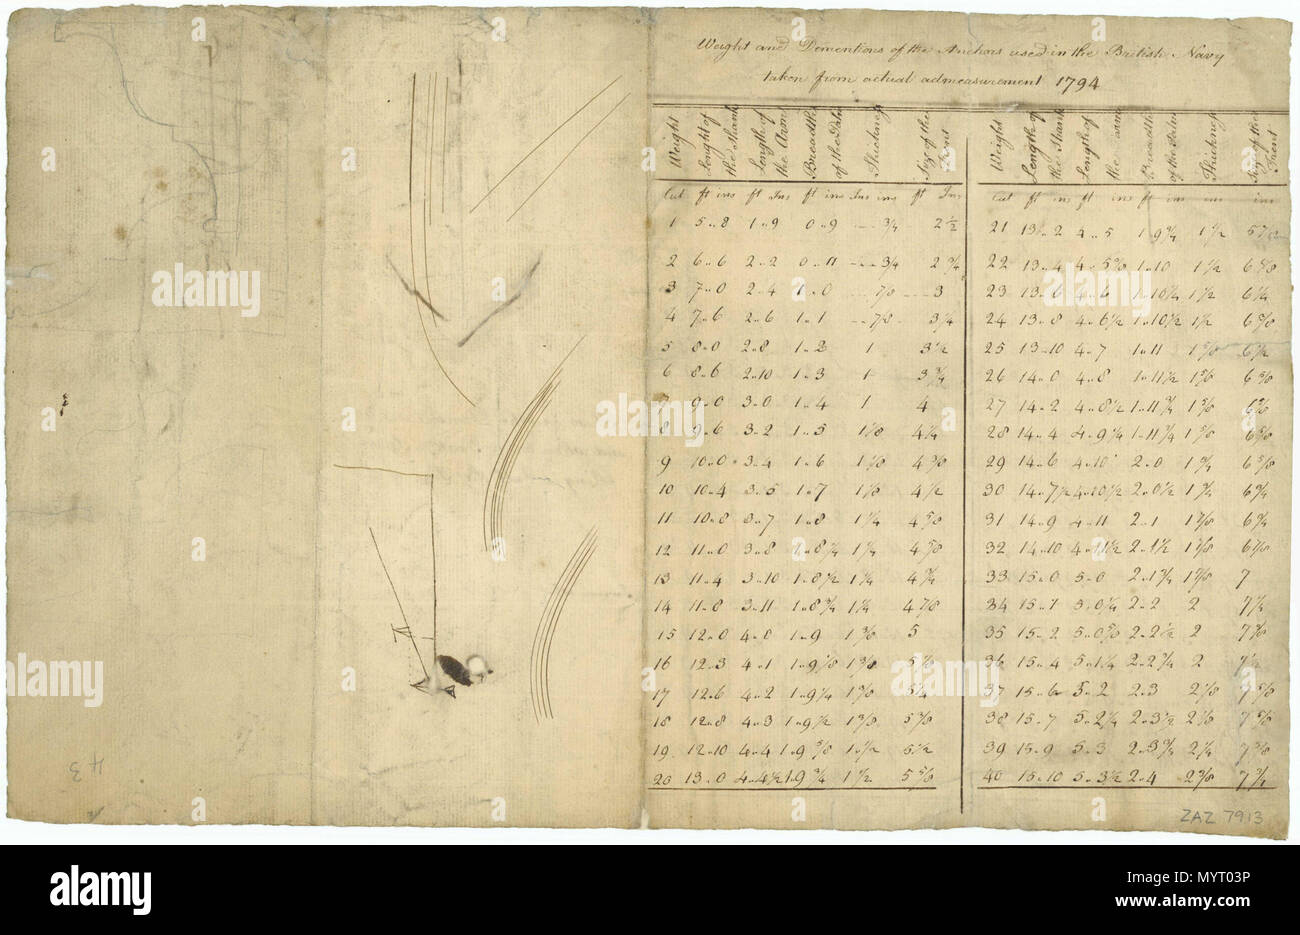 Weight and Dementions of the Anchors used in the British Navy
taken from actual admeasurement 1794
Weight Lenght of the Shank Length of the Arms Breadth of the Palm Thickness Siz of the Trent
Cut ft ins ft Ins ft ins Ins ins ft Ins
1 5..8 1..9 0..9 ... 3/4 2 1/2
2 6..6 2..2 0..11 ... 3/4 2 3/4
3 7..0 2..4 1..0 ... 7/8 ... 3
4 7..6 2..6 1..1 ... 7/8 3 1/4
5 8..0 2..8 1..2 1 3 1/2
6 8..6 2..10 1..3 1 3 3/4
9..0 3..0 1..4 1 4
8 9..6 3..2 1..5 1 1/8 4 1/4
9 10..0 3..4 1..6 1 1/8 4 3/8
10 10..4 3..5 1..7 1 1/8 4 1/2
11 10..8 3..7 1..8 1 1/4 4 5/8
12 11..0 3..8 1..8 1/4 1 1/4 4 5/8
13 11..4 3..10 1..8 1/2 1 1/4 4 3/4
14 11..8 3..11 1..8 3/4 1 1/4 4 7/8
15 12..0 4..0 1..9 1 3/8 5
16 12..3 4..1 1..9 1/8 1 3/8 5 1/8
17 12..6 4..2 1..9 1/4 1 3/8 5 1/4
18 12..8 4..3 1..9 1/2 1 3/8 5 3/8
19 12..10 4..4 1..9 5/8 1..1/2 5 1/2
20 13..0 4..4 1/2 1..9 3/4 1 1/2 5 5/8
Weight Length of the Shank Length of the arms Breadth of the Palm Thickness Siz of the Trent
Cut ft ins ft ins ft ins ins ins
21 13..2 4..5 1..9 3/4 1 1/2 5 7/8
22 13..4 4..5 5/8 1..10 1 1/2 6
23 13..6 4..6 1..10 1/4 1 1/2 6 1/4
24 13..8 4..6 1/2 1..10 1/2 1 1/2 6 3/8
25 13..10 4..7 1..11 1 5/8 6 1/2
26 14..0 4..8 1..11 1/2 1 5/8 6 5/8
27 14..2 4..8 1/2 1..11 3/4 1 5/8 6 5/8
28 14..4 4..9 1/4 1..11 3/4 1 5/8 6 5/8
29 14..6 4..10 2..0 1 3/4 6 5/8
30 14..7 1/2 4..10 1/2 2..0 1/2 1 3/4 6 3/4
31 14..9 4..11 2..1 1 7/8 6 3/4
32 14..10 4..11 1/2 2..1 1/2 1 7/8 6 7/8
33 15..0 5..0 2..1 3/4 1 7/8 7
34 15..1 5..0 1/4 2..2 2 7 1/4
35 15..2 5..0 5/8 2..2 1/2 2 7 3/8
36 15..4 5..1 1/4 2..2 3/4 2 7 1/2
37 15..6 5..2 2..3 2 1/8 7 5/8
38 15..7 5..2 1/4 2..3 1/2 2 1/8 7 5/8
39 15..9 5..3 2..3 3/4 2 1/4 7 5/8
40 15..10 5..3 1/2 2..4 2 3/8 7 3/4
43
ZAZ 7913
alamy
alamy
alamy
alamy
a
alamy
Image ID: MYT03P
www.alamy.com